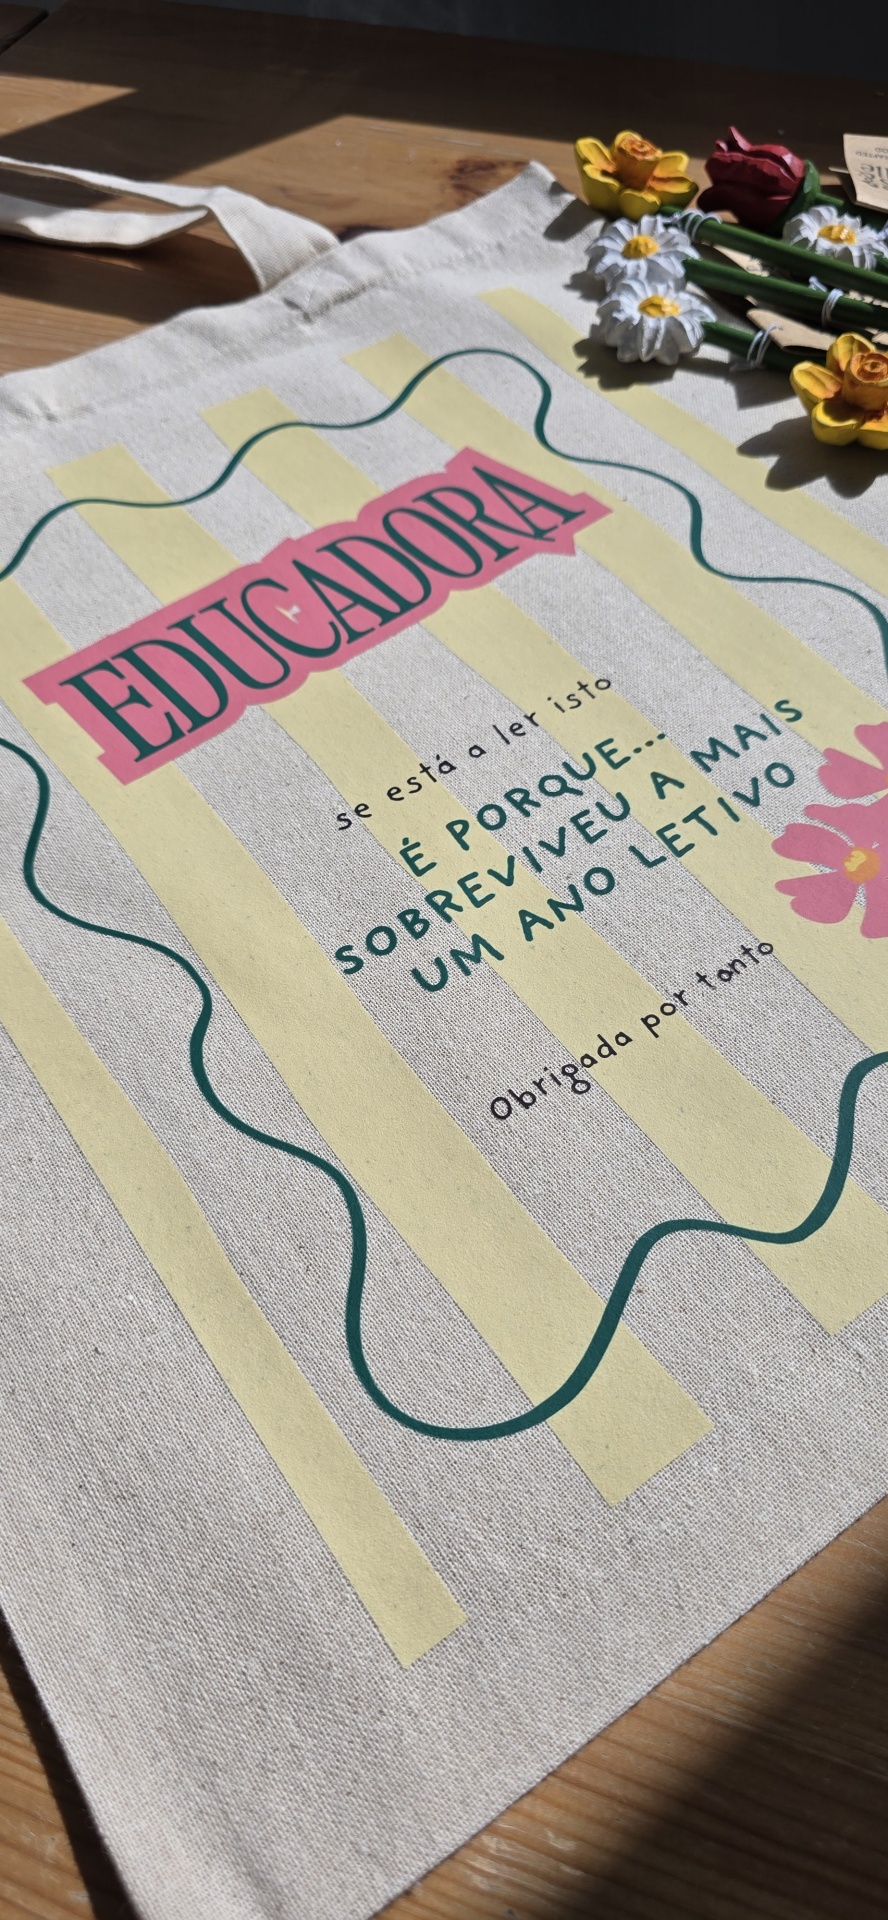 EDUCADORA
se está a ler isto
É PORQUE...
SOBREVIVEU A MAIS
UM ANO LETIVO
Obrigada por tanto